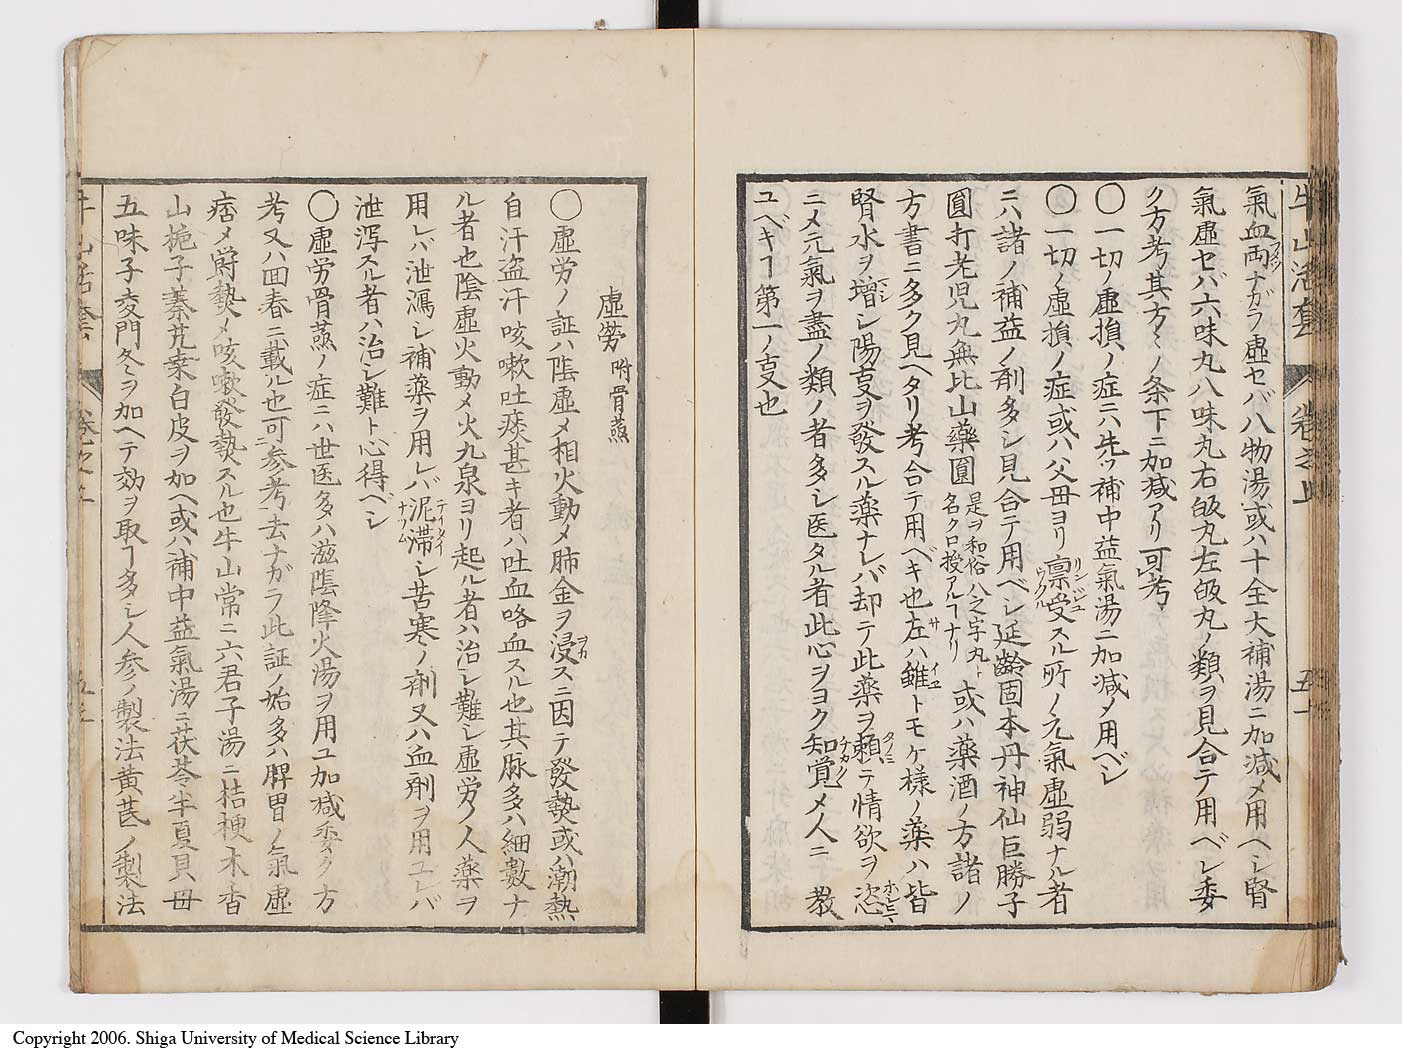 牛山活套 卷之上 五十一
氣血両ナガラ虚セバ八物湯或ハ十全大補湯ニ加減メ用ヘシ腎
氣虚セバ六味丸八味丸右皈丸左皈丸ノ類ヲ見合テ用ベレ委
ク方考其方〻ノ条下ニ加减アリ可考
〇一切ノ虚損ノ症ニハ先ッ補中益氣湯ニ加减メ用ベシ
〇一切ノ虚損ノ症或ハ父母ヨリ禀受スル所ノ元氣虚弱ナル者
ニハ諸ノ補益ノ剤多シ見合テ用ベシ延齡固本丹神仙巨勝子
圓打老児丸無比山藥圓是ヲ和俗八之字丸ト名ク口授アルヿナリ或ハ薬酒ノ方諸ノ
方書ニ多ク見ヘタリ考合テ用ベキ也左ハ雖トモケ様ノ薬ハ皆
腎水ヲ増シ陽叓ヲ發スル薬ナレバ却テ此薬ヲ頼テ情欲ヲ恣
ニメ元氣ヲ盡ノ類ノ者多シ医タル者此心ヲヨク知覚メ人ニ教
ユベキヿ第一ノ叓也
虚勞 附骨蒸
〇虚労ノ証ハ陰虚メ相火動メ肺金ヲ浸スニ因テ發熱或ハ潮熱
自汗盗汗咳嗽吐痰甚キ者ハ吐血咯血スル也其脉多ハ細數ナ
ル者也陰虚火動メ火九泉ヨリ起ル者ハ治シ難シ虚労ノ人薬ヲ
用レバ泄瀉シ補薬ヲ用レバ泥滞シ苦寒ノ剤又ハ血剤ヲ用ユレバ
泄泻スル者ハ治シ難ト心得ベシ
〇虚労骨蒸ノ症ニハ世医多ハ滋陰降火湯ヲ用ユ加减委ク方
考又ハ回春ニ載ル也可参考去ナガラ此証ノ始多ハ脾胃ノ氣虚
痞メ欝熱メ咳嗽發熱スル也牛山常ニ六君子湯ニ桔梗木香
山梔子蓁艽桒白皮ヲ加ヘ或ハ補中益氣湯ニ茯苓半夏貝母
五味子麦門冬ヲ加ヘテ効ヲ取ヿ多シ人参ノ製法黄芪ノ製法